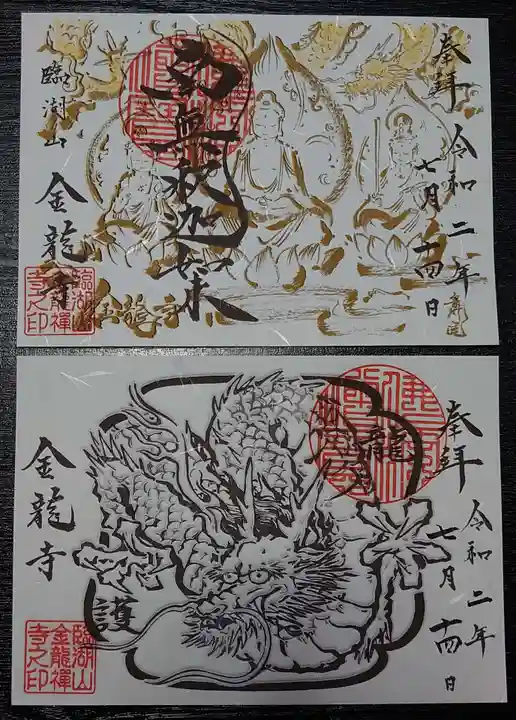 奉拝
令和二年
七月十四日
南無釈迦如来
臨湖山
金龍寺
臨湖山
金龍禅
寺之印
金龍寺
奉拝
令和二年
七月十四日
龍
護
金龍寺
臨湖山
金龍禅
寺之印